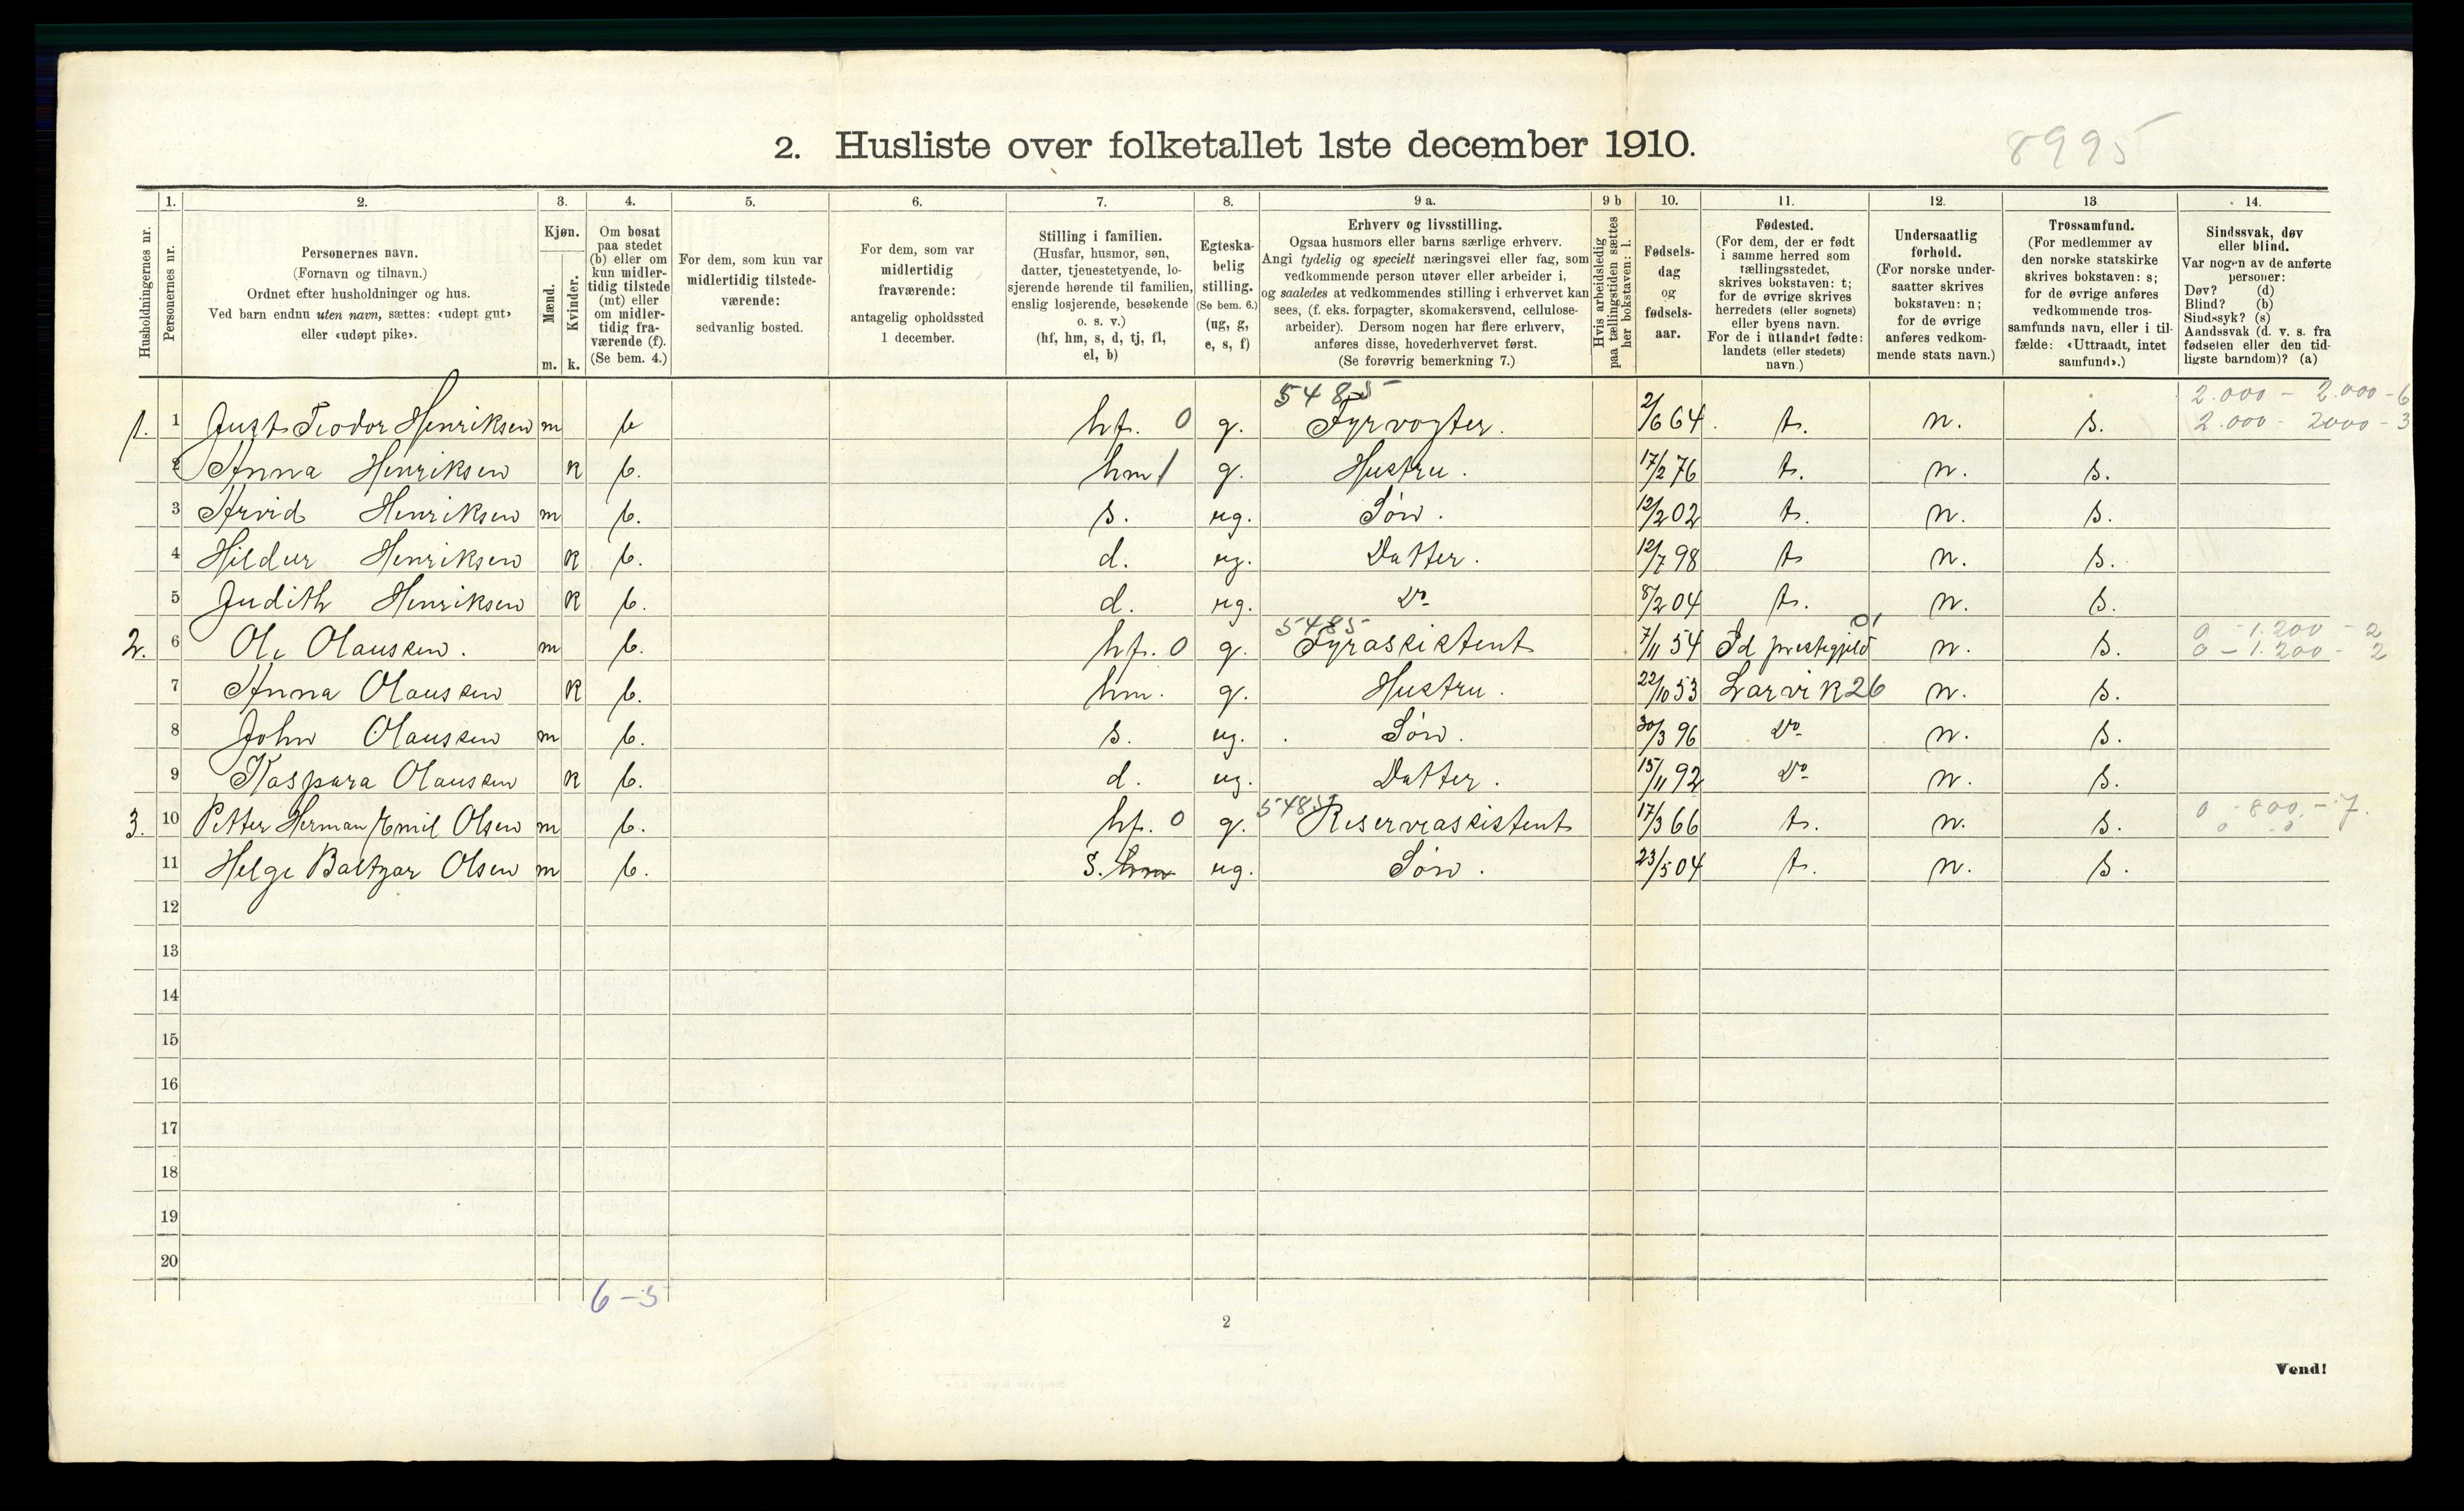 2. Husliste over folketallet 1ste december 1910.
8995
Husholdningernes nr.
1. Personernes nr.
2. Personernes navn.
(Fornavn og tilnavn.)
Ordnet efter husholdninger og hus.
Ved barn endnu uten navn, sættes: «udøpt gut»
eller «udøpt pike».
3. Kjøn.
Mænd. m.
Kvinder. k.
4. Om bosat
paa stedet
(b) eller om
kun midler-
tidig tilstede
(mt) eller
om midler-
tidig fra-
værende (f).
(Se bem. 4.)
5. For dem, som kun var
midlertidig tilstede-
værende:
sedvanlig bosted.
6. For dem, som var
midlertidig
fraværende:
antagelig opholdssted
1 december.
7. Stilling i familien.
(Husfar, husmor, søn,
datter, tjenestetyende, lo-
sjerende hørende til familien,
enslig losjerende, besøkende
o. s. v.)
(hf, hm, s, d, tj, fl,
el, b)
8. Egteska-
belig
stilling.
(Se bem. 6.)
(ug, g,
e, s, f)
9 a. Erhverv og livsstilling.
Ogsaa husmors eller barns særlige erhverv.
Angi tydelig og specielt næringsvei eller fag, som
vedkommende person utøver eller arbeider i,
og saaledes at vedkommendes stilling i erhvervet kan
sees, (f. eks. forpagter, skomakersvend, cellulose-
arbeider). Dersom nogen har flere erhverv,
anføres disse, hovederhvervet først.
(Se forøvrig bemerkning 7.)
9 b Hvis arbeidsledig
paa tællingstiden sættes
her bokstaven: l.
10. Fødsels-
dag
og
fødsels-
aar.
11. Fødested.
(For dem, der er født
i samme herred som
tællingsstedet,
skrives bokstaven: t;
for de øvrige skrives
herredets (eller sognets)
eller byens navn.
For de i utlandet fødte:
landets (eller stedets)
navn.)
12. Undersaatlig
forhold.
(For norske under-
saatter skrives
bokstaven: n;
for de øvrige
anføres vedkom-
mende stats navn.)
13 Trossamfund.
(For medlemmer av
den norske statskirke
skrives bokstaven: s;
for de øvrige anføres
vedkommende tros-
samfunds navn, eller i til-
fælde: «Uttraadt, intet
samfund».)
14. Sindssvak, døv
eller blind.
Var nogen av de anførte
personer:
Døv? (d)
Blind? (b)
Sindssyk? (s)
Aandssvak (d. v. s. fra
fødselen eller den tid-
ligste barndom)? (a)
5485 2.000 - 2.000 - 6
1. 1 Just Teodor Henriksen m b hf. 0 g. Fyrvogter. 2/6 64. t. n. s. 2.000 - 2000 - 3
2 Anna Henriksen k b. hm 1 g. Hustru. 17/2 76 t. n. s.
3 Arvid Henriksen m b. s. ug. Søn. 12/2 02 t. n. s.
4 Hildur Henriksen k b. d. ug. Datter. 12/7 98 t n. s.
5 Judith Henriksen k b. d. ug. Do 8/2 04 t. n. s.
5485 01 0 - 1.200 - 2
2. 6 Ole Olaussen. m b. hf. 0 g. Fyrassistent 7/11 54 Id prestegjeld n. s. 0 - 1.200 - 2
7 Anna Olaussen k b. hm. g. Hustru. 22/10 53 Larvik 26 n. s.
8 John Olaussen m b. s. ug. Søn. 30/3 96 Do n. s.
9 Kaspara Olaussen k b. d. ug. Datter. 15/11 92 Do n. s.
5485 0 - 800. - 7.
3. 10 Petter Herman Emil Olsen m b. hf. 0 g. Reserveassistent 17/3 66 t. n. s. 0 - 0
11 Helge Baltzar Olsen m b. s. hm ug. Søn. 23/5 04 t. n. s.
12
13
14
15
16
17
18
19
20
6 - 5
2
Vend!